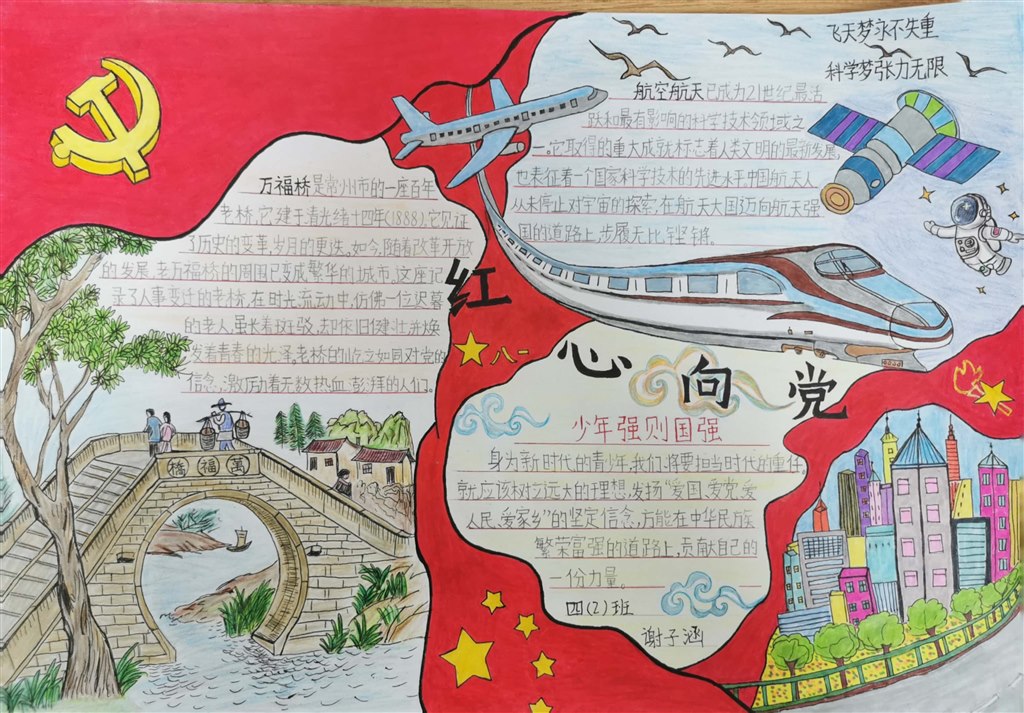 飞天梦永不失重
科学梦张力无限
航空航天已成为21世纪最活
跃和最有影响的科学技术领域之
一。它取得的重大成就标志着人类文明的最新发展,
也表征着一个国家科学技术的先进水平.中国航天人
从未停止对宇宙的探索,在航天大国迈向航天强
国的道路上,步履无比铿锵。
万福桥是常州市的一座百年
老桥,它建于清光绪十四年(1888),它见证
了历史的变革,岁月的更迭。如今,随着改革开放
的发展,老万福桥的周围已变成繁华的城市,这座记
录了人事变迁的老桥,在时光流动中,仿佛一位迟暮
的老人,虽长着斑驳,却依旧健壮,并焕
发着青春的光泽,老桥的屹立如同对党的
信念,激励着无数热血澎湃的人们。
红
心
向
党
八一
橋福萬
少年强则国强
身为新时代的青少年,我们将要担当时代的重任,
就应该树立远大的理想,发扬“爱国、爱党、爱
人民、爱家乡”的坚定信念,方能在中华民族
繁荣富强的道路上,贡献自己的
一份力量。
四(2)班
谢子涵